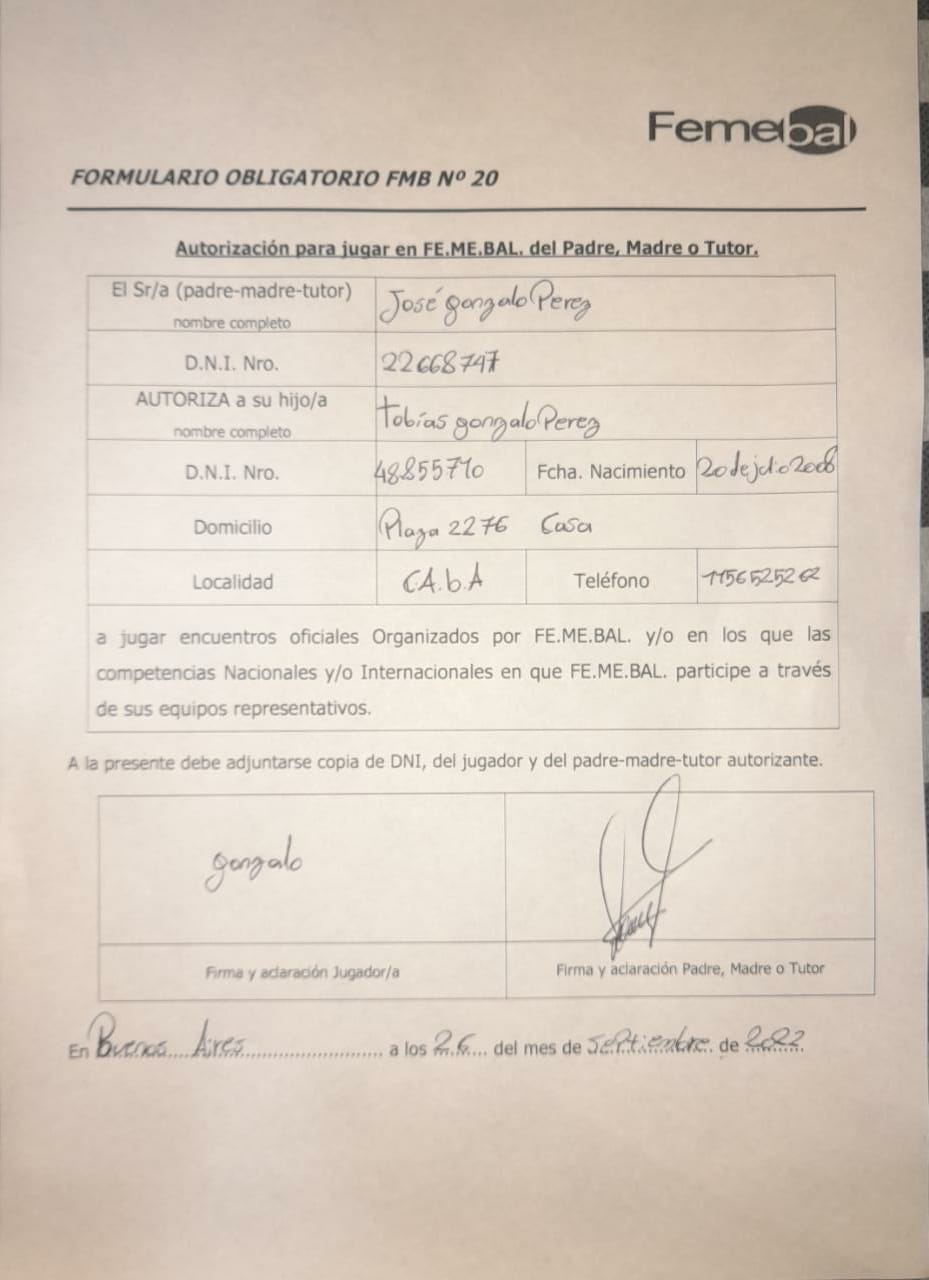 Femebal
FORMULARIO OBLIGATORIO FMB Nº 20
Autorización para jugar en FE.ME.BAL. del Padre, Madre o Tutor.
El Sr/a (padre-madre-tutor) José gonzalo Perez
nombre completo
D.N.I. Nro. 22668747
AUTORIZA a su hijo/a tobías gonzalo Perez
nombre completo
D.N.I. Nro. 48855710 Fcha. Nacimiento 20 de julio 2008
Domicilio Plaza 2276 Casa
Localidad C.A.b.A Teléfono 1156525262
a jugar encuentros oficiales Organizados por FE.ME.BAL. y/o en los que las
competencias Nacionales y/o Internacionales en que FE.ME.BAL. participe a través
de sus equipos representativos.
A la presente debe adjuntarse copia de DNI, del jugador y del padre-madre-tutor autorizante.
gonzalo
Firma y aclaración Jugador/a Firma y aclaración Padre, Madre o Tutor
En Buenos Aires a los 26 del mes de septiembre de 2022